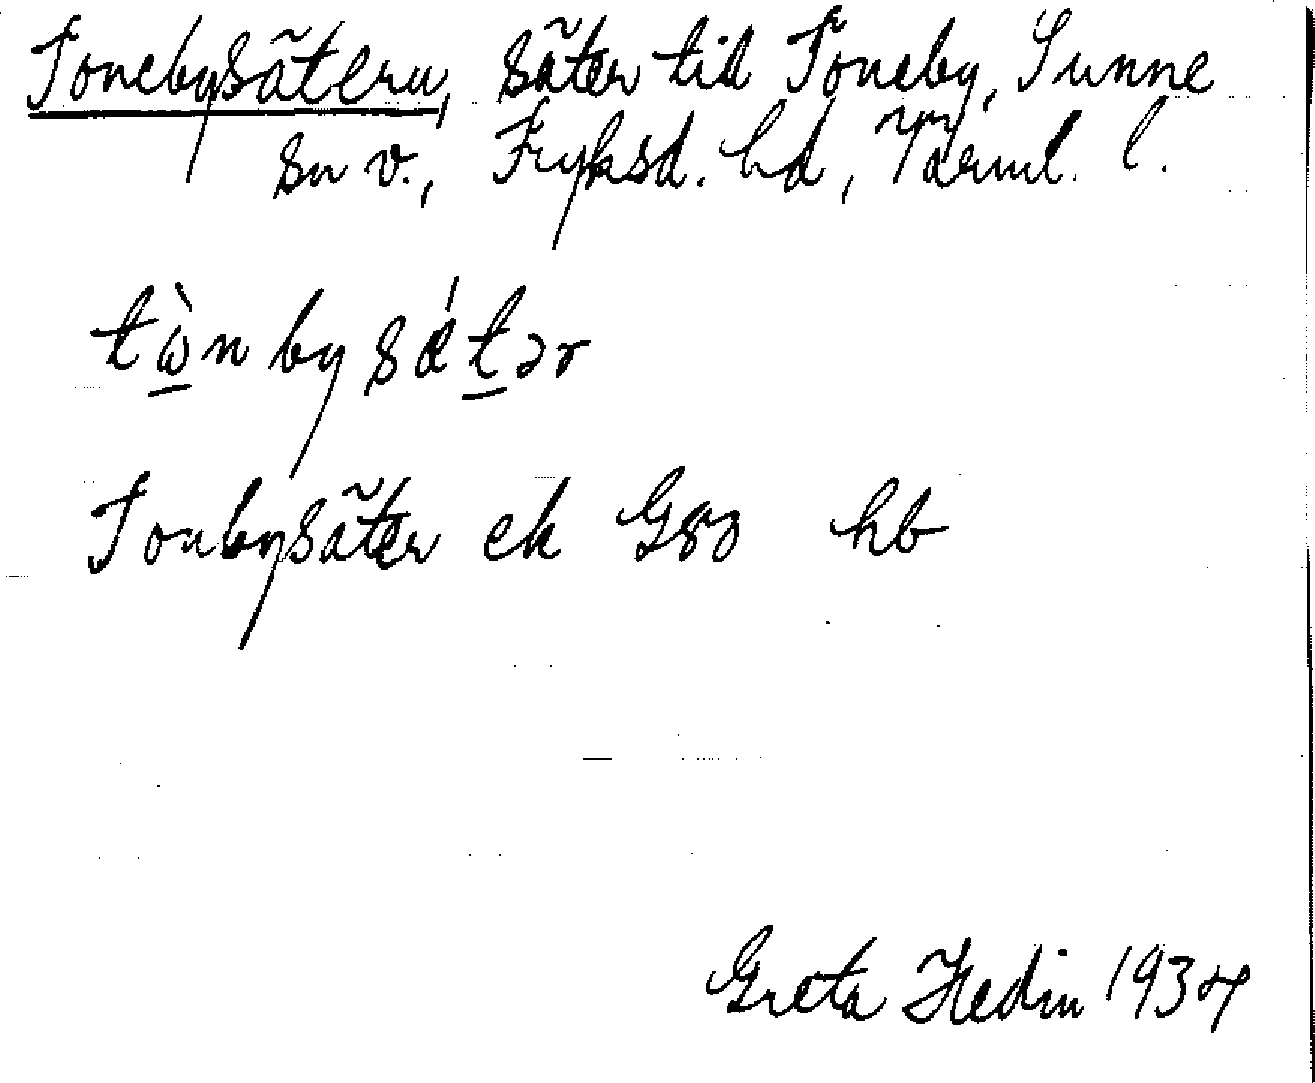 Tonebysätern, säter till Toneby, Sunne
sn v., Fryksd. hd, Värml. l.
tὼ̲nbysǽt̲ər
Tonbysäter ek G83 hb
Greta Hedin 1934